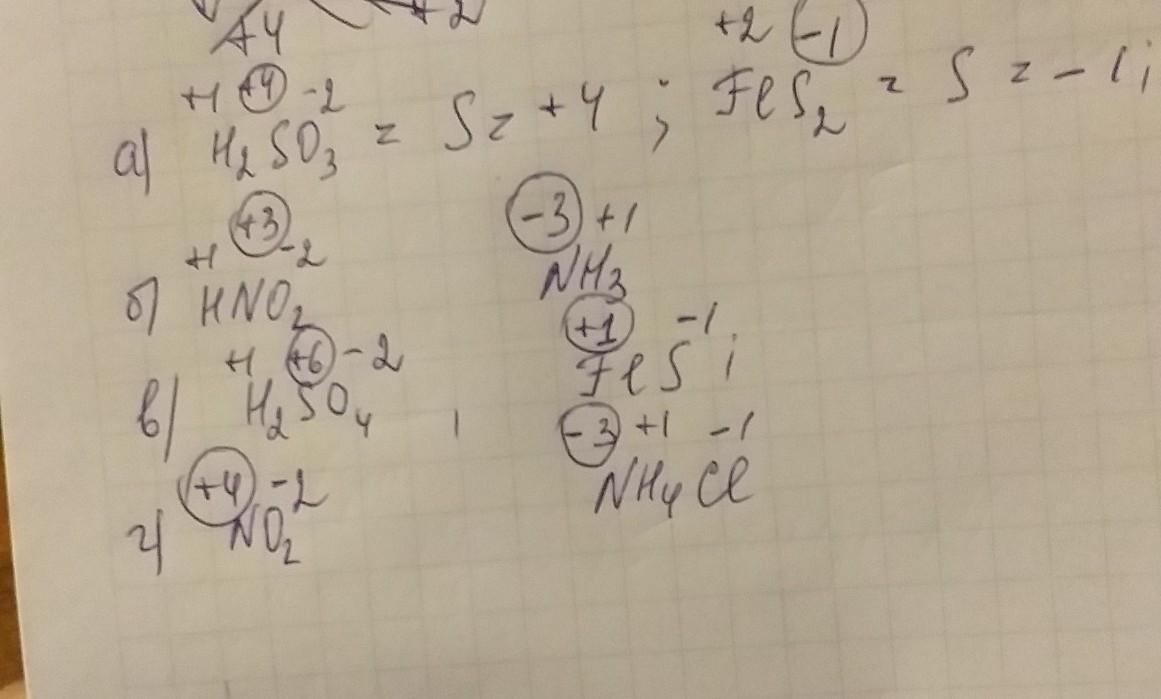 +4 +2
+1 +4 -2 +2 -1
а) H₂SO₃ = S = +4 ; FeS₂ = S = -1;
+1 +3 -2 -3 +1
б) HNO₂ NH₃
+1 +6 -2 +1 -1
в) H₂SO₄ , FeS ;
+4 -2 -3 +1 -1
г) NO₂ NH₄Cl